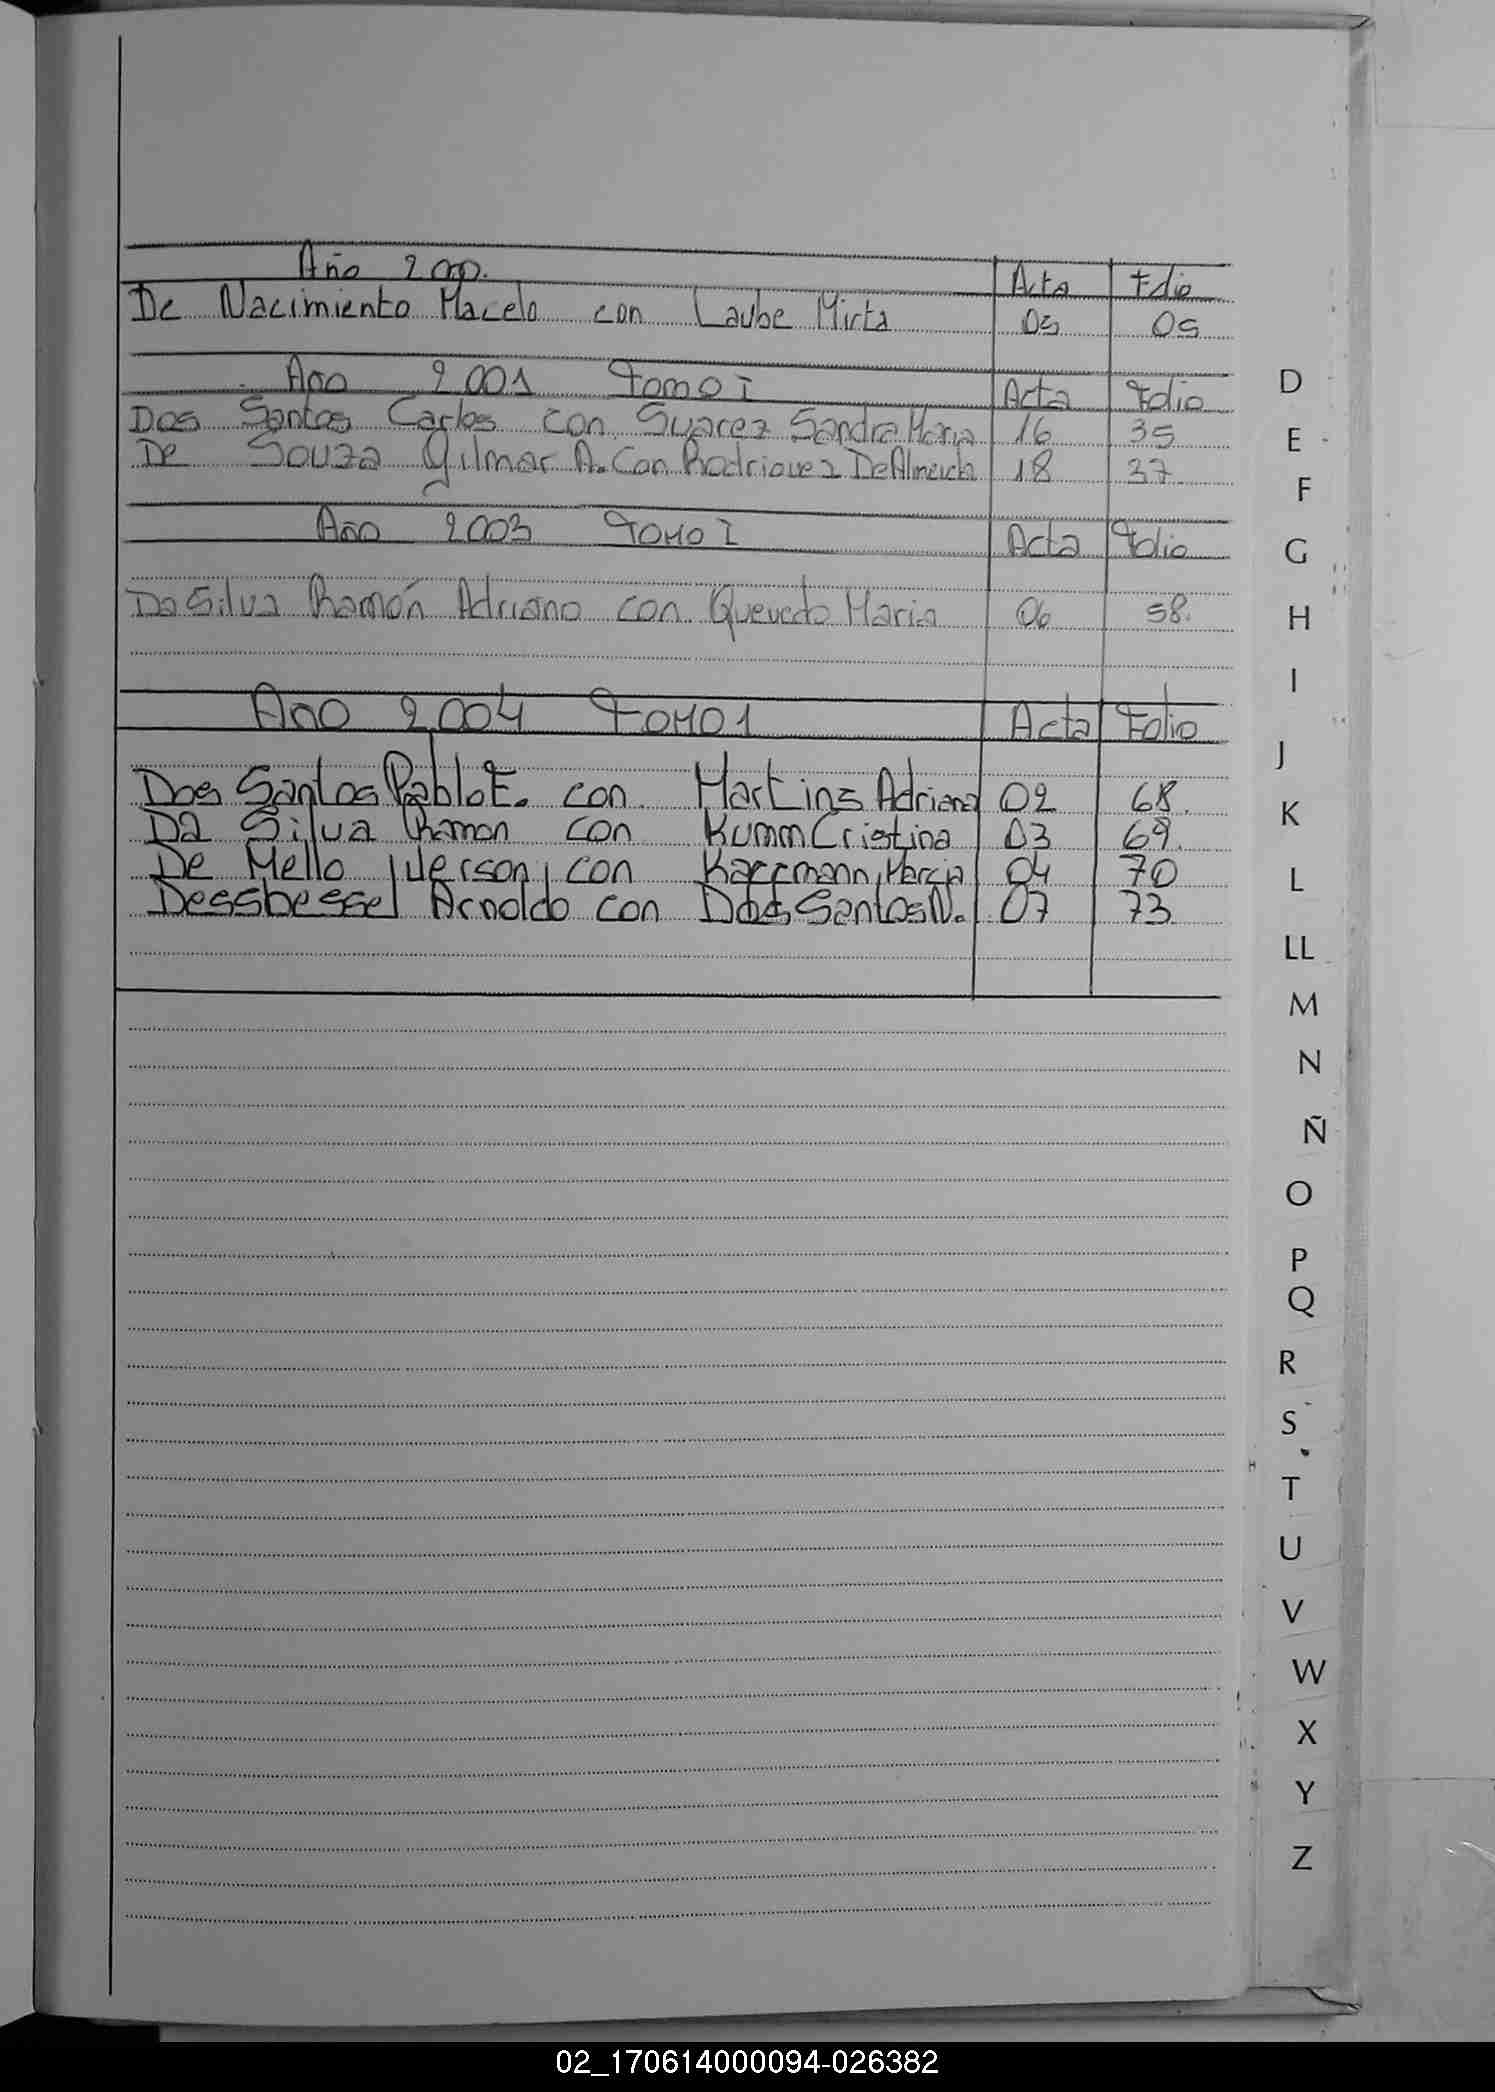 Año 2000. Acta Folio
De Nacimiento Macelo con Laube Mirta 05 05
Año 2001 Tomo I Acta Folio
Dos Santos Carlos con Suarez Sandra Maria 16 35
De Souza Gilmar A. Con Rodriguez De Almeida 18 37
Año 2003 TOMO I Acta Folio
Da Silva Ramón Adriano con Quevedo Maria 06 58.
Año 2004 TOMO 1 Acta Folio
Dos Santos Pablo E. con Martins Adriana 02 68.
Da Silva Ramon con Kumm Cristina 03 69.
De Mello Jerson con Marcia 04 70
Dessbessel Arnoldo con Dos Santos N. 07 73
D
E
F
G
H
I
J
K
L
LL
M
N
Ñ
O
P
Q
R
S
T
U
V
W
X
Y
Z
02_170614000094-026382